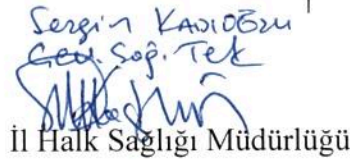 Sezgin KADIOĞLU
Çev. Sağ. Tek
İl Halk Sağlığı Müdürlüğü